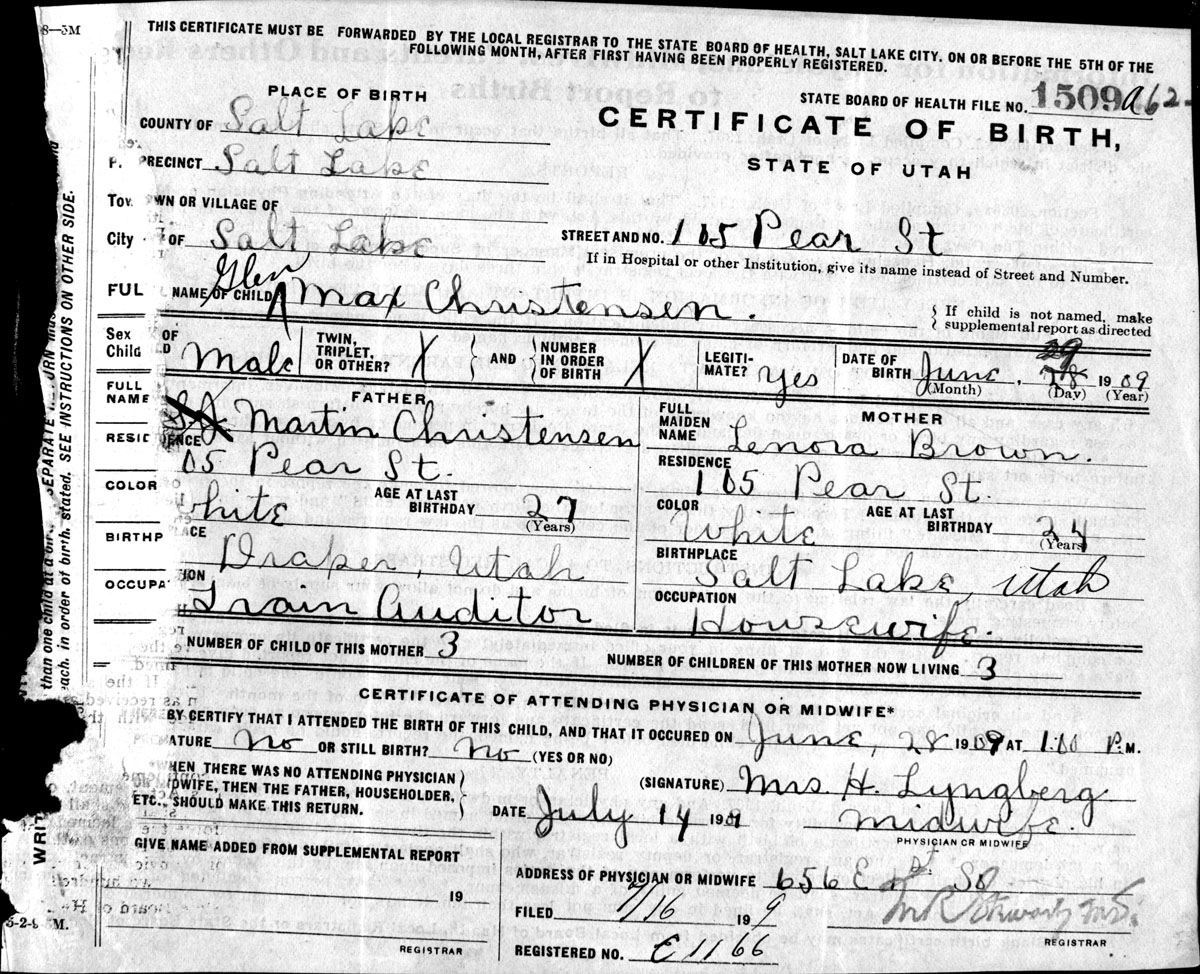 8—5M
THIS CERTIFICATE MUST BE FORWARDED BY THE LOCAL REGISTRAR TO THE STATE BOARD OF HEALTH, SALT LAKE CITY. ON OR BEFORE THE 5TH OF THE
FOLLOWING MONTH, AFTER FIRST HAVING BEEN PROPERLY REGISTERED.
PLACE OF BIRTH
STATE BOARD OF HEALTH FILE NO. 1509 a62-
COUNTY OF Salt Lake
CERTIFICATE OF BIRTH,
P. PRECINCT Salt Lake
STATE OF UTAH
TOV WN OR VILLAGE OF
City OF Salt Lake
STREET AND NO. 105 Pear St
If in Hospital or other Institution, give its name instead of Street and Number.
Glen
FUL NAME OF CHILD Max Christensen.
If child is not named, make
supplemental report as directed
Sex OF
Child Male
TWIN, TRIPLET, OR OTHER? / AND NUMBER IN ORDER OF BIRTH /
LEGITI-MATE? yes
DATE OF BIRTH June, 29 28 1909
(Month) (Day) (Year)
FATHER
FULL NAME Martin Christensen
RESIDENCE 105 Pear St.
COLOR White AGE AT LAST BIRTHDAY 27 (Years)
BIRTHPLACE Draper Utah
OCCUPATION Train Auditor
MOTHER
FULL MAIDEN NAME Lenora Brown.
RESIDENCE 105 Pear St.
COLOR White AGE AT LAST BIRTHDAY (Years)
BIRTHPLACE Salt Lake, Utah
OCCUPATION Housewife.
NUMBER OF CHILD OF THIS MOTHER 3
NUMBER OF CHILDREN OF THIS MOTHER NOW LIVING 3
CERTIFICATE OF ATTENDING PHYSICIAN OR MIDWIFE*
BY CERTIFY THAT I ATTENDED THE BIRTH OF THIS CHILD, AND THAT IT OCCURED ON June, 28 1909 AT 1:00 P.M.
ATURE no OR STILL BIRTH? no (YES OR NO)
HEN THERE WAS NO ATTENDING PHYSICIAN
MIDWIFE, THEN THE FATHER, HOUSEHOLDER,
ETC., SHOULD MAKE THIS RETURN.
(SIGNATURE) Mrs. H. Lyngberg
DATE July 14 1909 Midwife.
PHYSICIAN OR MIDWIFE
GIVE NAME ADDED FROM SUPPLEMENTAL REPORT
19
ADDRESS OF PHYSICIAN OR MIDWIFE 656 E 2d So
FILED 7/16 19 9
REGISTRAR
REGISTERED NO. E1166
REGISTRAR
5-2-9 5M.
than one child at a bir SEPARATE RETURN mus
each, in order of birth, stated. SEE INSTRUCTIONS ON OTHER SIDE.
WRIT